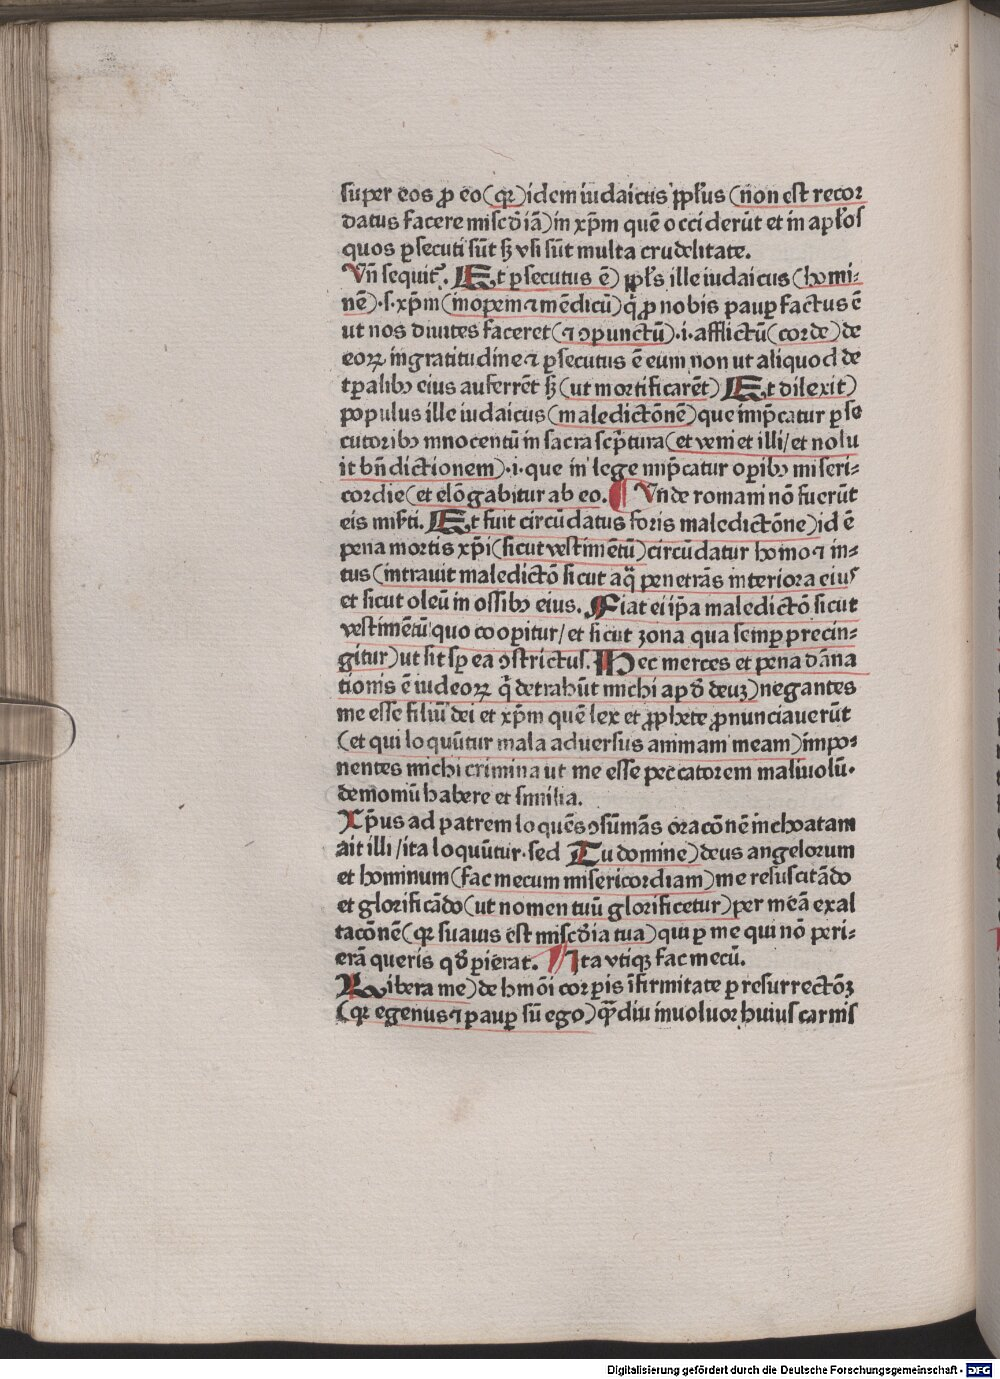 super eos ꝓ eo (qꝛ) idem iudaicus ppl'us (non est recor
datus facere misc̄diā) in xp̄m quē occiderūt et in apl'os
quos ꝑsecuti sūt sꝫ vsi sūt multa crudelitate.
Vn̄ sequit̉. Et ꝑsecutus ē) ppl's ille iudaicus (homi⸗
nē) ·s· xp̄m (inopem ⁊ mēdicū) q̄ ꝓ nobis pauꝑ factus ē
ut nos diuites faceret (⁊ ↄpunctū) ·i· afflictū (corde) de
eoꝝ ingratitudine ⁊ ꝑsecutus ē eum non ut aliquod de
tꝑalibꝫ eius auferrēt sꝫ (ut mortificarēt) Et dilexit)
populus ille iudaicus (maledictōnē) que imp̄catur ꝑse
cutoribꝫ innocentū in sacra scp̄tura (et veniet illi / et nolu
it bn̄dictionem) ·i· que in lege imp̄catur oꝑibꝫ miseri⸗
cordie (et elōgabitur ab eo. ¶ Vnde romani nō fuerūt
eis mis'ti. Et fuit circūdatus foris maledictōne) id ē
pena mortis xp̄i (sicut vestimētū) circūdatur homo ⁊ in⸗
tus (intrauit maledictō sicut aq̄ penetrās interiora eius
et sicut oleū in ossibꝫ eius. Fiat ei ip̄a maledictō sicut
vestimētū quo cooꝑitur / et sicut zona qua semꝑ precin⸗
gitur) ut sit sꝑ ea ↄstrictus. Hec merces et pena dāna
tionis ē iudeoꝝ q̄ detrahūt michi apd̄ deuꝫ) negantes
me esse filiū dei et xp̄m quē lex et ꝓphete ꝓnunciauerūt
(et qui loquūtur mala aduersus animam meam) impo⸗
nentes michi crimina ut me esse peccatorem maliuolū·
demoniū habere et similia.
Xp̄us ad patrem loquēs ↄsūmās oracōnē inchoatam
ait illi / ita loquūtur· sed Tu domine) deus angelorum
et hominum (fac mecum misericordiam) me resuscitādo
et glorificādo (ut nomen tuū glorificetur) per meā exal
tacōnē (qꝛ suauis est misc̄dia tua) qui ꝑ me qui nō peri⸗
erā queris qd̄ pierat. Ita vtiqꝫ fac mecū.
Libera me) de hmōi corꝑis īfirmitate ꝑ resurrectōꝫ
(qꝛ egenus ⁊ pauꝑ sū ego) qͣdiu inuoluor huius carnis
Digitalisierung gefördert durch die Deutsche Forschungsgemeinschaft - DFG